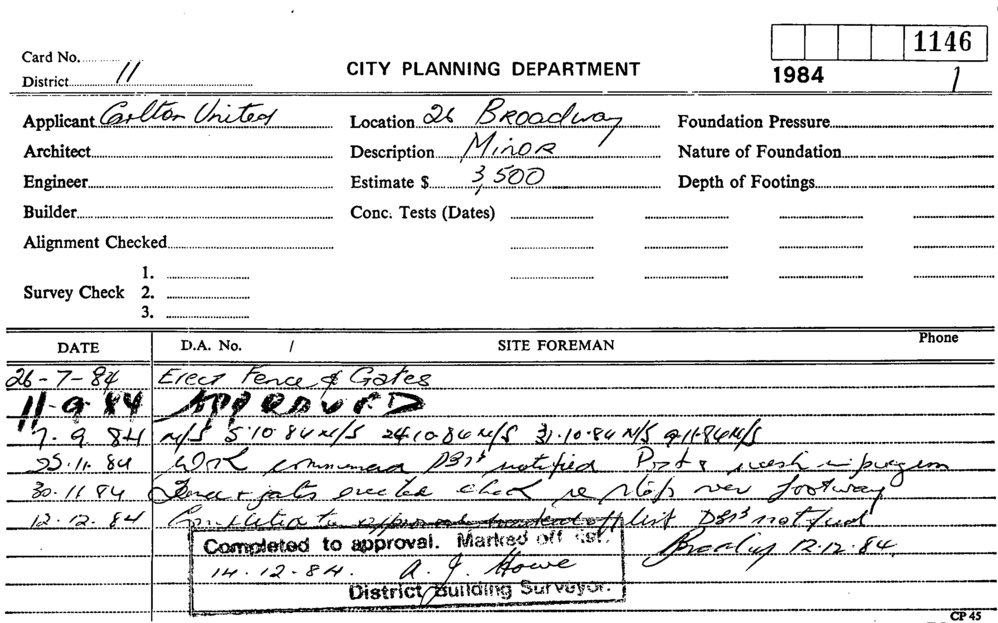 Card No.
1146
CITY PLANNING DEPARTMENT
1984 1
District 11
Applicant Carlton United Location 26 Broadway Foundation Pressure
Architect Description Minor Nature of Foundation
Engineer Estimate $ 3,500 Depth of Footings
Builder Conc. Tests (Dates)
Alignment Checked
1.
Survey Check 2.
3.
DATE D.A. No. / SITE FOREMAN Phone
26-7-84 Erect Fence & Gates
11.9.84 APPROVED
7.9.84 N/S 5.10.84 N/S 24.10.84 N/S 31.10.84 N/S 9.11.84 N/S
25.11.84 Work commenced notified Posts mesh in progress
30.11.84 Fence & gates erected check re steps over footway
12.12.84 list notified
Completed to approval. Marked off list. 12.12.84
14.12.84. A. J. Howe
District Building Surveyor.
CP 45